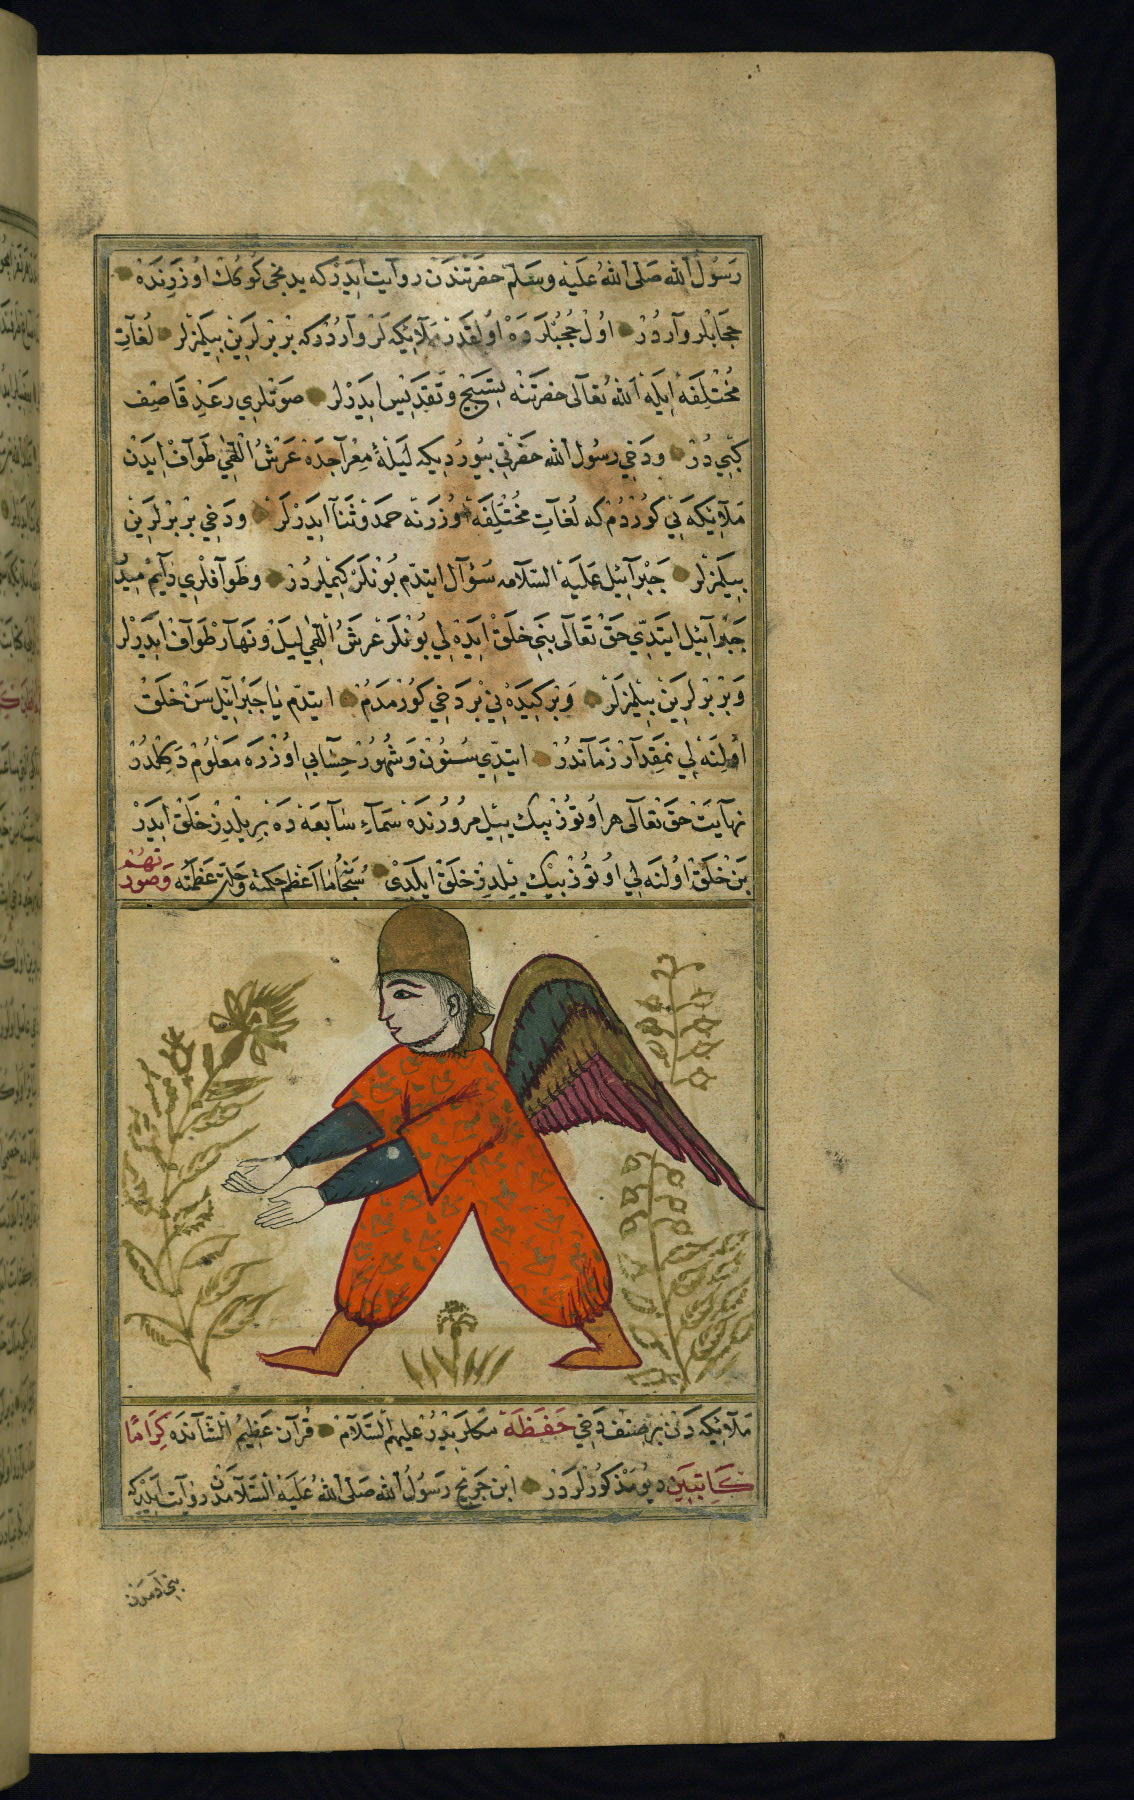 رسول الله صلى الله عليه وسلم حضرتندن روايت ايدر كه يدنجى كوكك اوزرنده
حجابلر واردر اول حجبلرده اولقدر ملائيكه لر واردر كه بربرلرين بيلمزلر لغات
مختلفه ايله الله تعالى حضرتنه تسبيح وتقديس ايدرلر صوتلرى رعد قاصف
كبى در ودخى رسول الله حضرتى بيورديكه ليلة معراجده عرش الهى طواف ايدن
ملائيكه يى كوردم كه لغات مختلفه اوزرنه حمد وثنا ايدرلر ودخى بربرلرين
بيلمزلر جبرائيل عليه السلامه سؤال ايتدم بونلر كيملردر وطوافلرى دايم ميدر
جبرائيل ايتدى حق تعالى بنى خلق ايده لى بونلر عرش الهى ليل ونهار طواف ايدرلر
وبربرلرين بيلمزلر وبر كيده نى بر دخى كورمدم ايتدم يا جبرائيل سن خلق
اولنه لى نمقدار زماندر ايتدى سنون وشهور حسابى اوزره معلوم دكلدر
نهايت حق تعالى هر اوتوز بيك ييل مرورنده سماء سابعه ده بر يلدز خلق ايدر
بن خلق اولنه لى اوتوز بيك يلدز خلق ايلدى سبحان ما اعظم حكمته وجلت عظمته وصورتهم
ملائيكه دن بر صنف دخى حفظه ملكلريدر عليهم السلام قرآن عظيم الشانده كراما
كاتبين ديو مذكورلردر ابن جريج رسول الله صلى الله عليه السلامدن روايت ايدر كه
بنى آدمدن